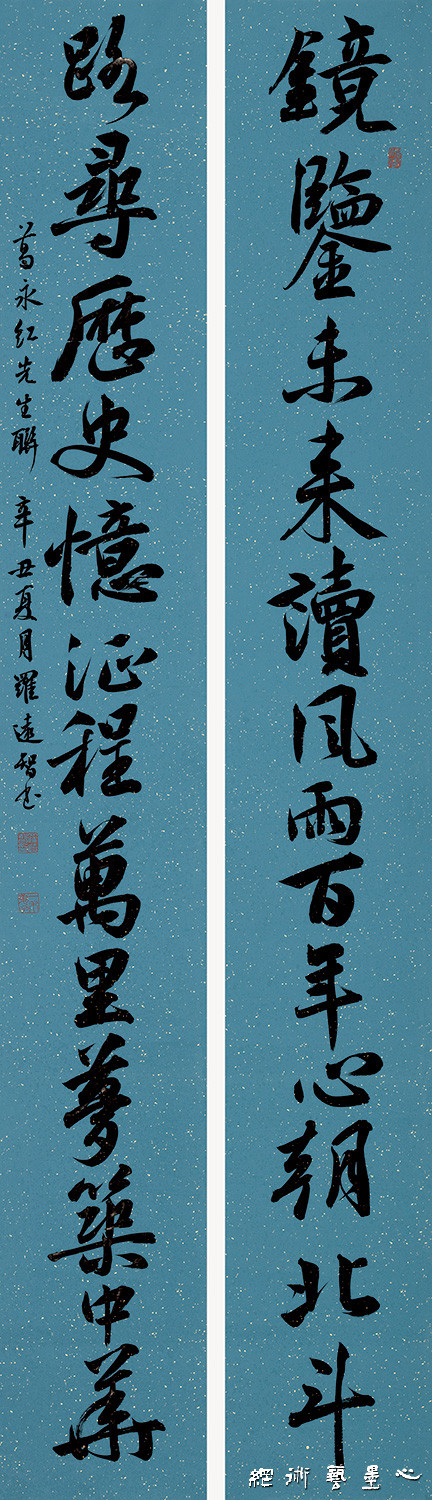 鏡鑒未来讀風雨百年心朝北斗
路尋歷史憶征程萬里夢築中華
葛永红先生聯 辛丑夏月羅遠智书
心墨藝術網